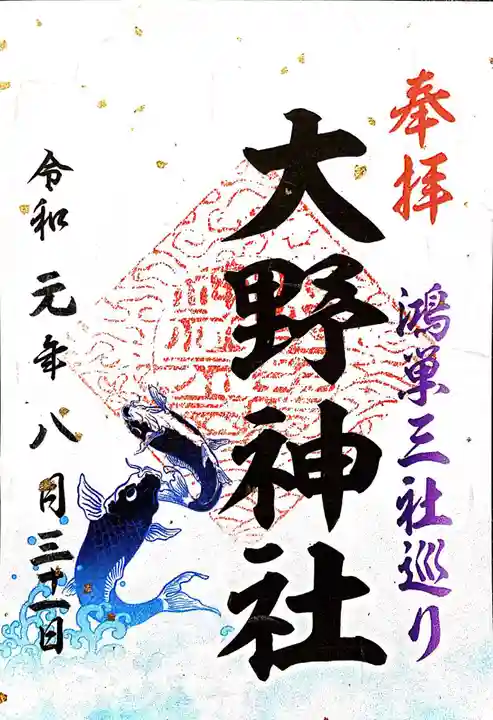 奉拝
鴻巣三社巡り
大野神社
令和元年八月三十一日